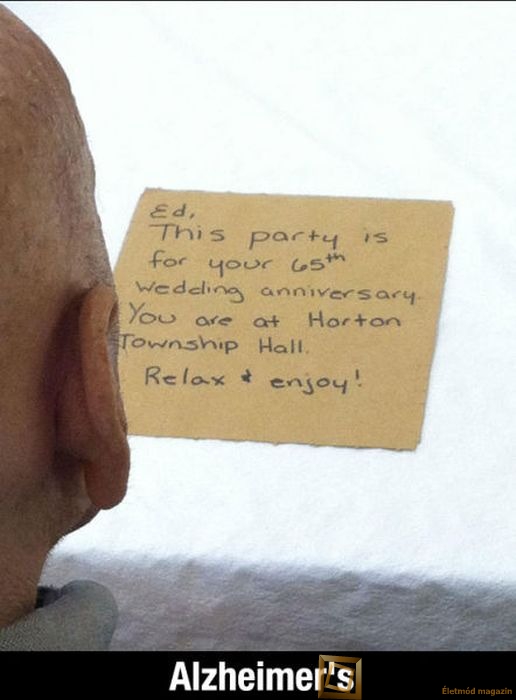 Ed,
This party is
for your 65th
wedding anniversary.
You are at Horton
Township Hall.
Relax & enjoy!
Alzheimer's
Életmód magazin